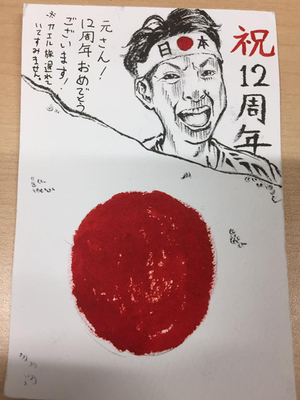 祝
12周年
日本
元さん!
12周年おめでとう
ございます!
※カエル 遅れて
いてすみません。